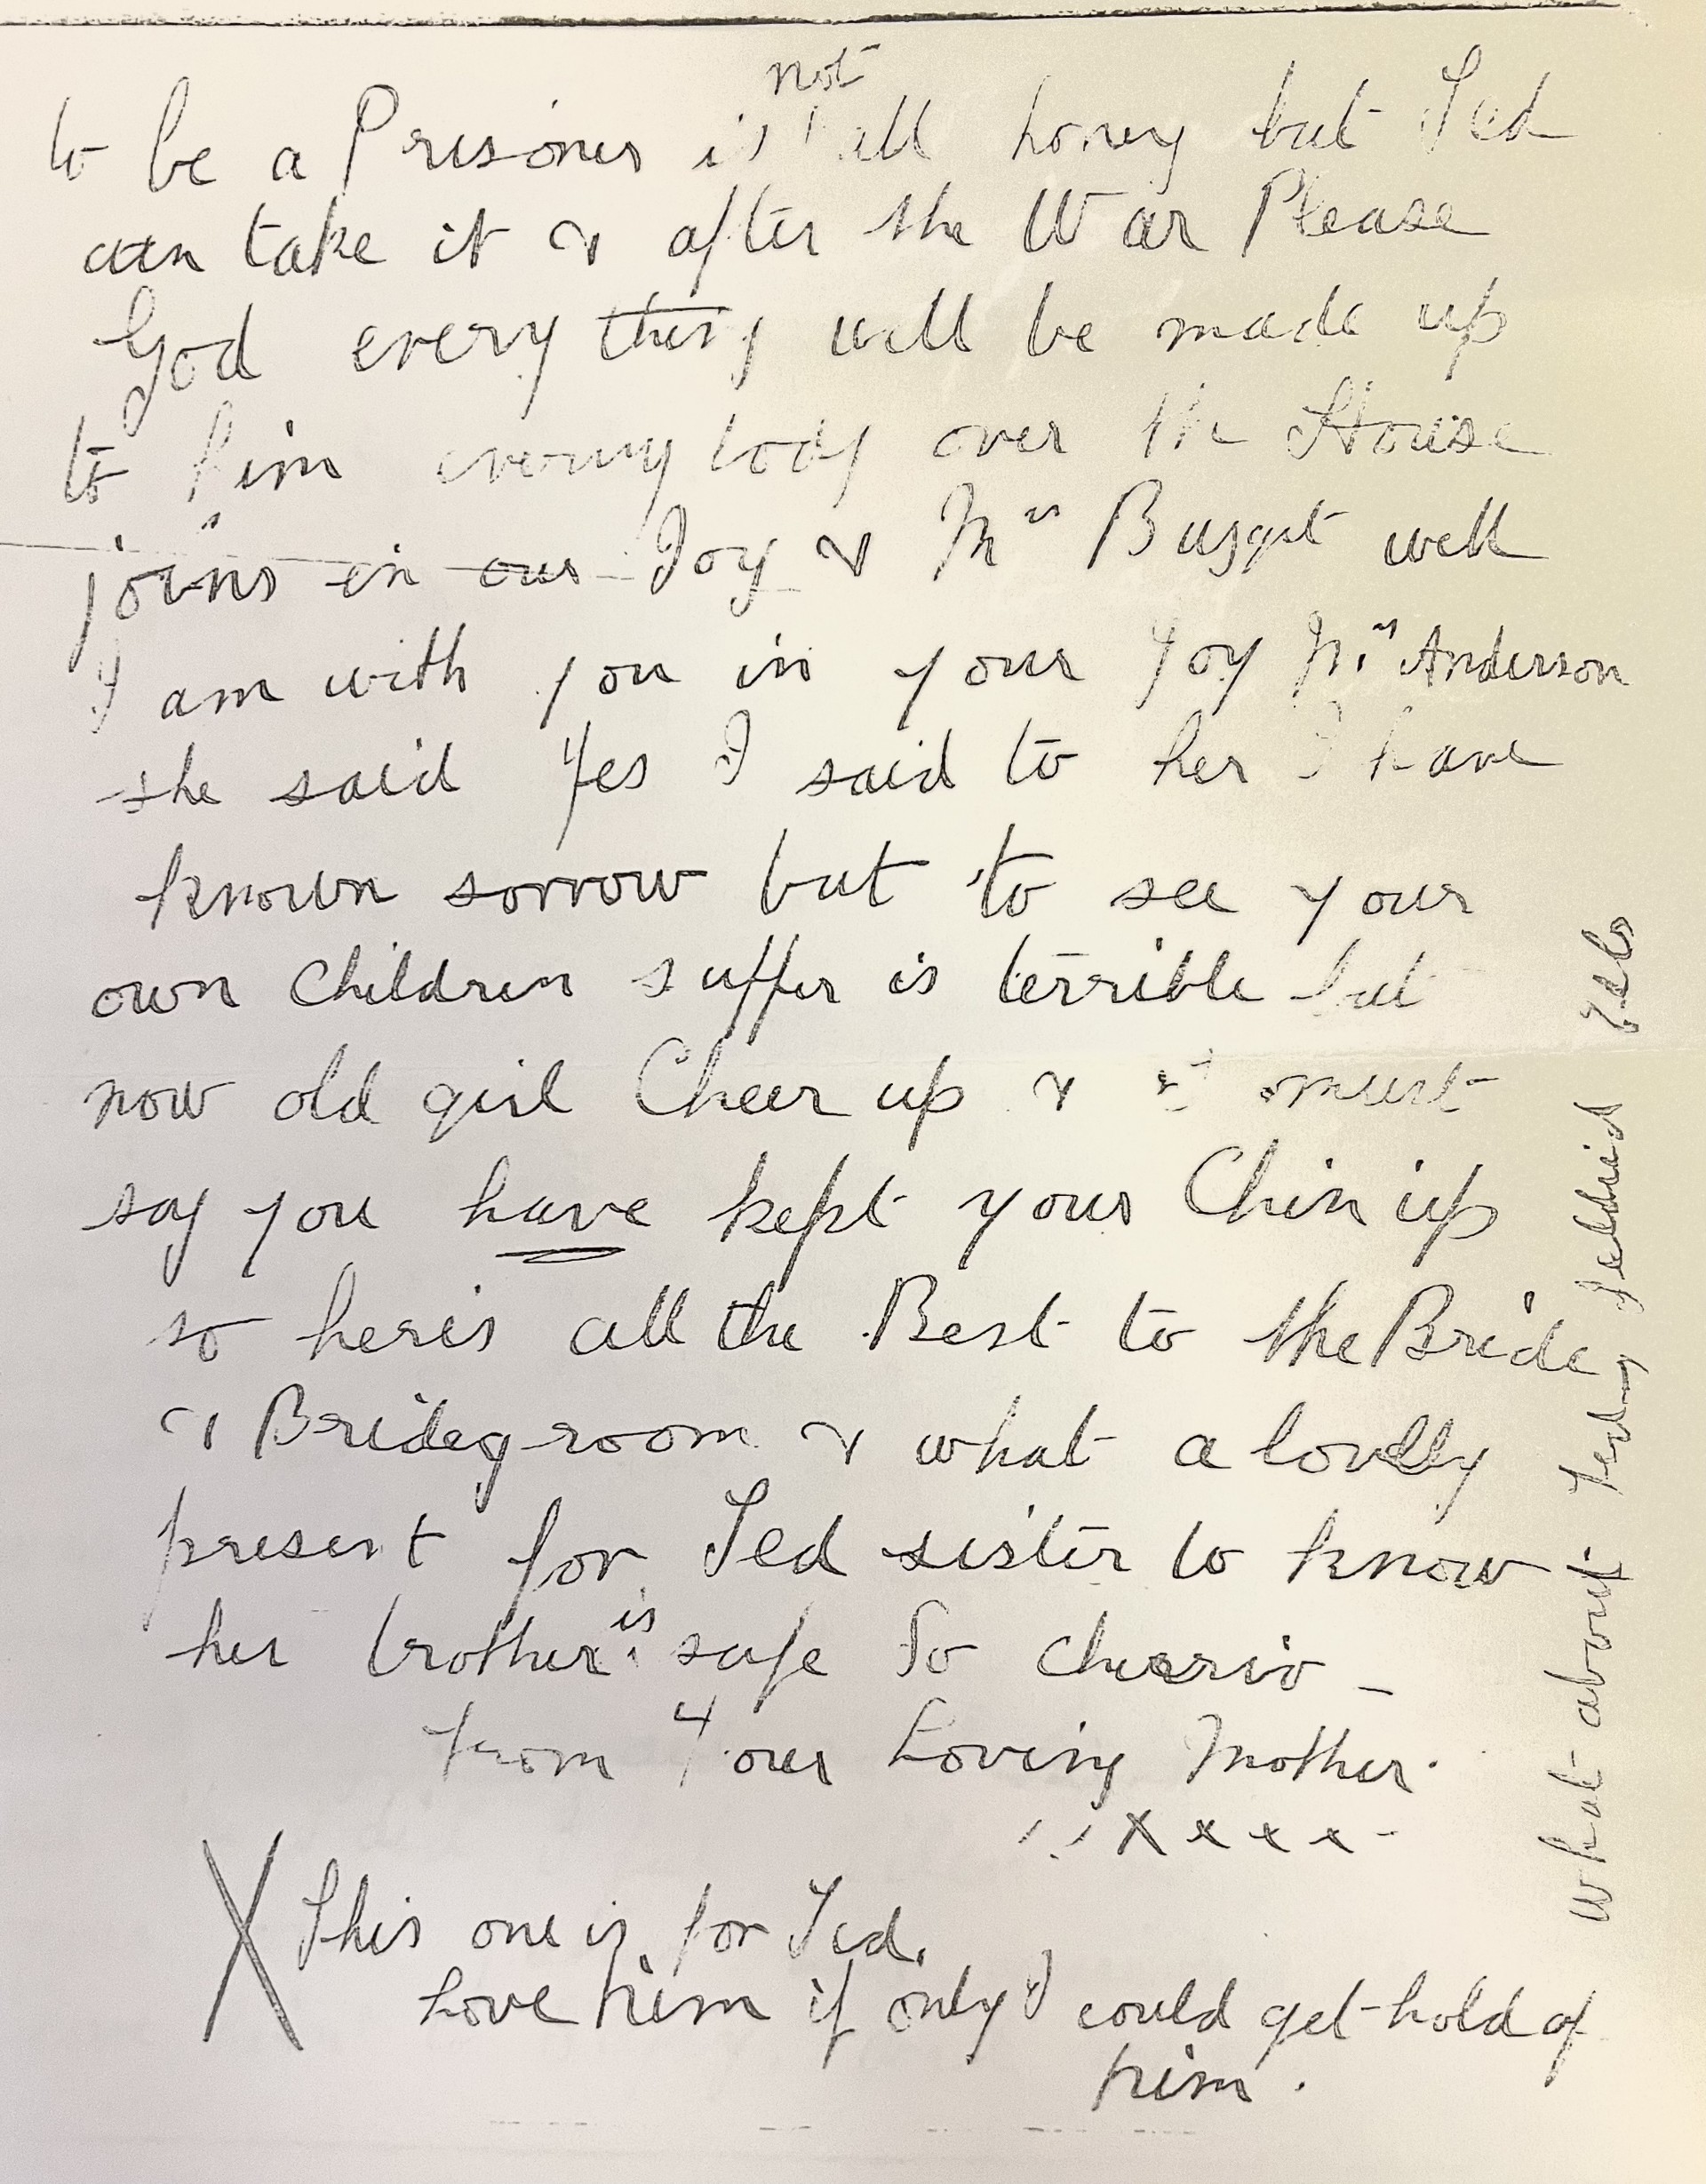 not
to be a Prisoner is all honey but Ted
can take it & after the War Please
God every thing will be made up
to him everybody over the House
joins in our Joy & Mrs well
I am with you in your Joy Mrs Anderson
she said Yes I said to her I have
known sorrow but to see your
own Children suffer is terrible but
now old girl Cheer up & must
say you have kept your Chin up
so heris all the Best to the Bride
& Bridegroom & what a lovely
present for Ted sister to know
is
her brother safe So cheerio -
from Your Loving Mother.
xxxx
X This one is for Ted.
Love him if only I could get hold of
him.
What about Teds